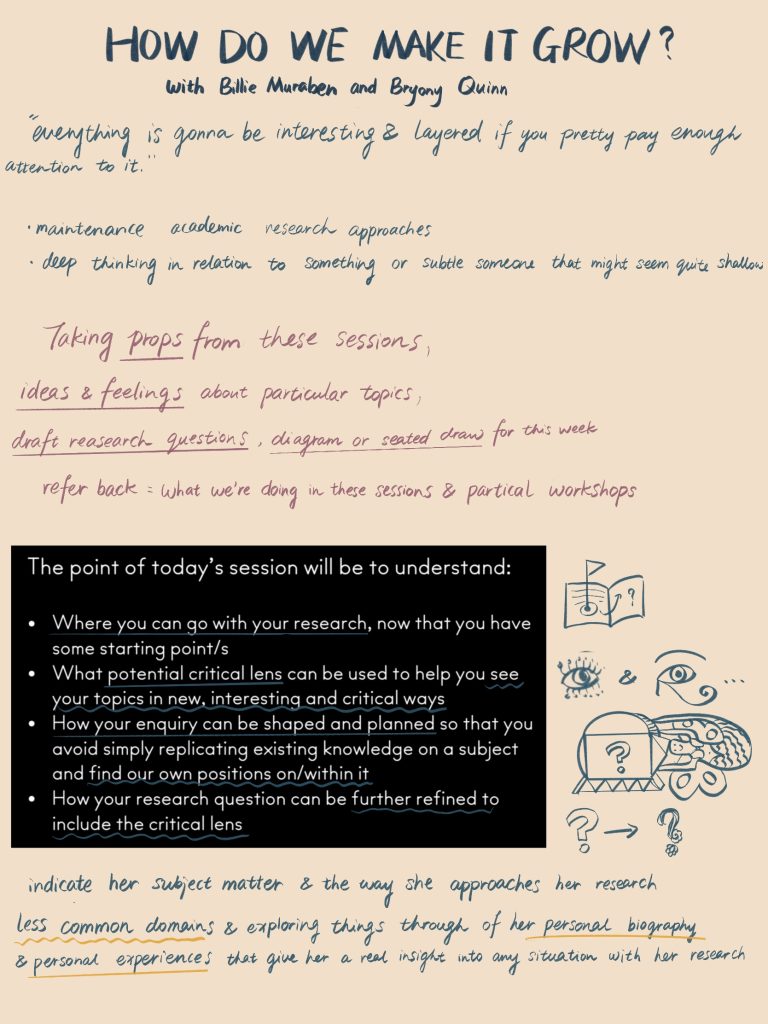 HOW DO WE MAKE IT GROW?
with Billie Muraben and Bryony Quinn
"everything is gonna be interesting & layered if you pretty pay enough
attention to it."
· maintenance academic research approaches
· deep thinking in relation to something or subtle someone that might seem quite shallow
Taking props from these sessions,
ideas & feelings about particular topics,
draft reasearch questions, diagram or seated draw for this week
refer back = what we're doing in these sessions & partical workshops
The point of today's session will be to understand:
• Where you can go with your research, now that you have
some starting point/s
• What potential critical lens can be used to help you see
your topics in new, interesting and critical ways
• How your enquiry can be shaped and planned so that you
avoid simply replicating existing knowledge on a subject
and find our own positions on/within it
• How your research question can be further refined to
include the critical lens
?
& ...
?
? → ?
indicate her subject matter & the way she approaches her research
less common domains & exploring things through of her personal biography
& personal experiences that give her a real insight into any situation with her research